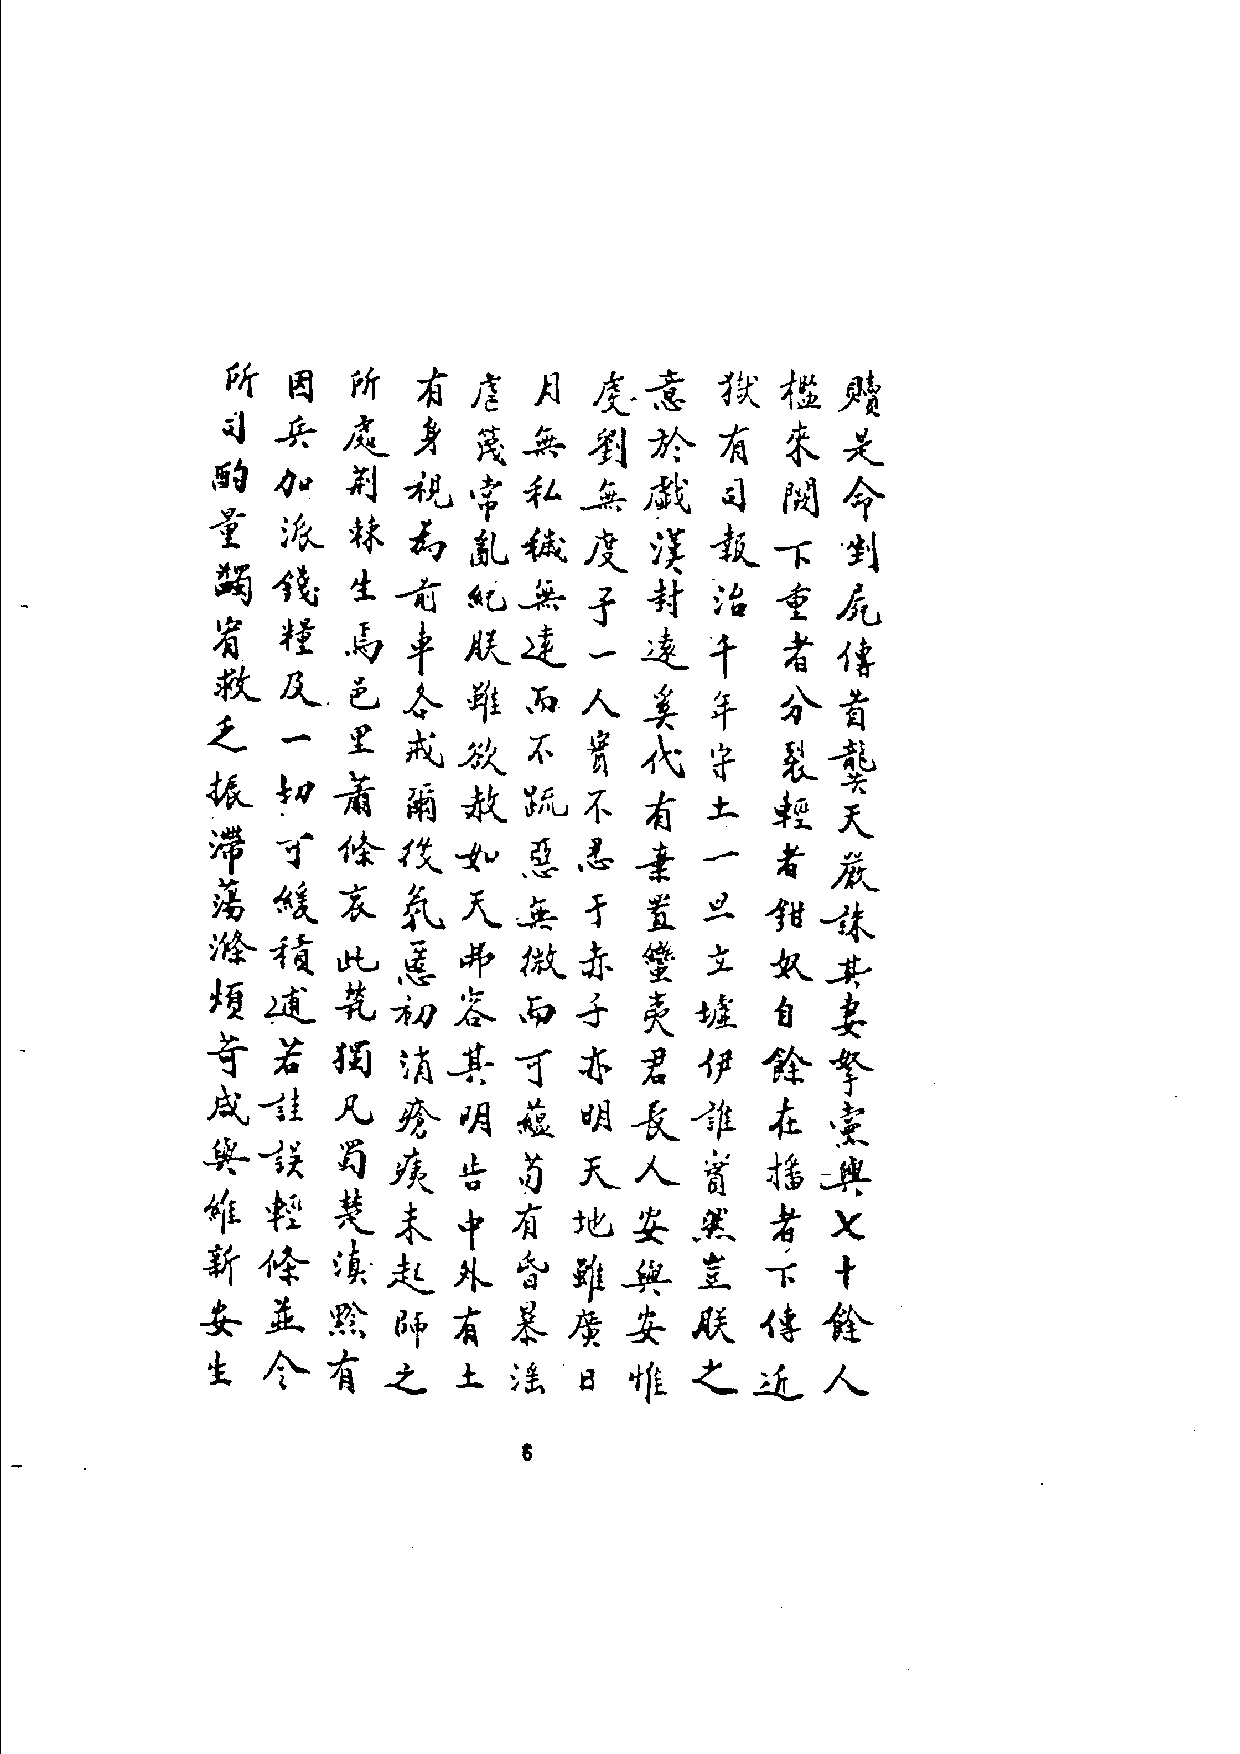 贖是命剉屍傳首龔天嚴誅其妻孥黨與七十餘人
檻來闕下重者分裂輕者鉗奴自餘在播者下傳近
獄有司報治千年守土一旦立墟伊誰實然豈朕之
意於戲漢封遠奚代有棄置蠻夷君長人安與安惟
虔劉無度予一人實不忍于赤子亦明天地雖廣日
月無私穢無遠而不疏惡無微而可蘊苟有昏暴滛
虐篾常亂紀朕雖欲赦如天弗容其明告中外有土
有身視為前車各戒爾後氛慝初消瘡痍未起師之
所處荆棘生焉邑里蕭條哀此煢獨凡蜀楚滇黔有
因兵加派錢糧及一切可緩積逋若詿誤輕條並令
所司酌量蠲宥救乏振滯蕩滌煩苛咸與維新安生
6